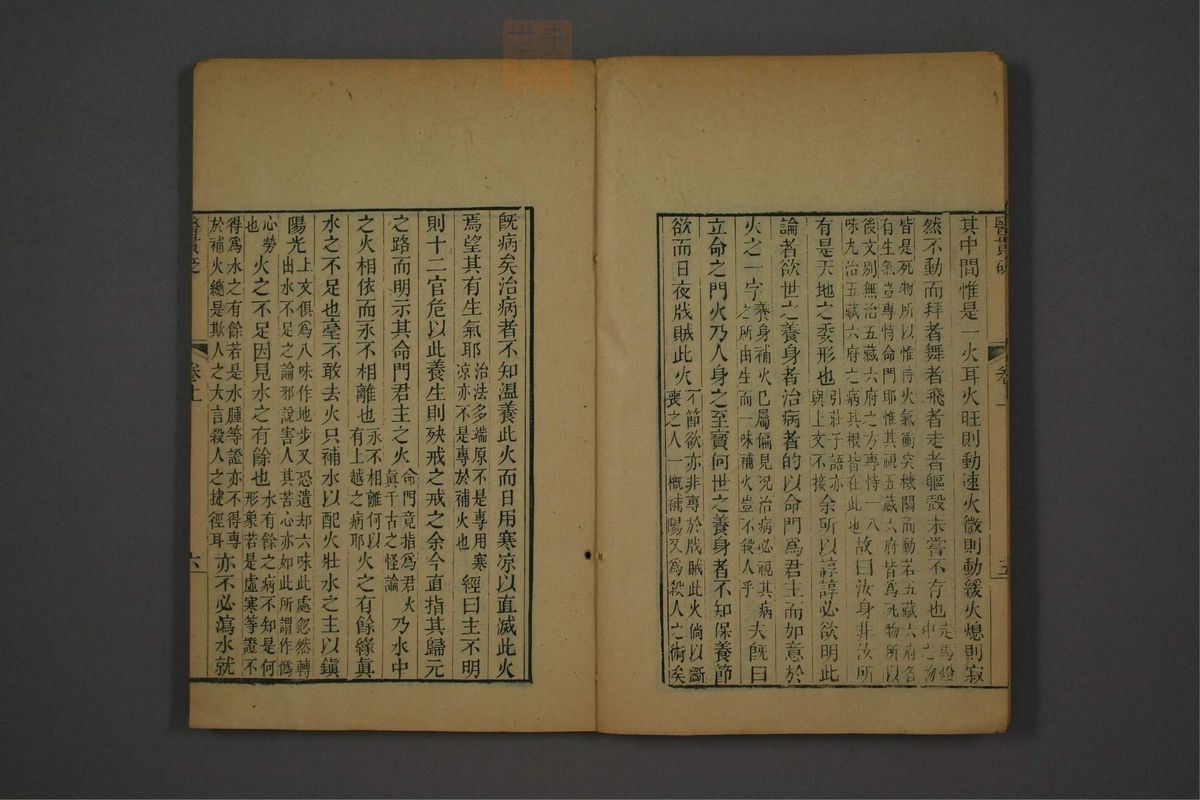 其中間惟是一火耳火旺則動速火微則動緩火熄則寂
然不動而拜者舞者飛者走者軀殼未嘗不存也走馬燈中之物
皆是死物所以惟恃火氣衝突機關而動若五藏六府各
有生氣豈專恃命門耶惟其視五藏六府皆為死物所以
後文别無治五藏六府之方專恃一八
味丸治五藏六府之病其根皆在此也故曰汝身非汝所
有是天地之委形也引莊子語亦與上文不接余所以諄諄必欲明此
論者欲世之養身者治病者的以命門爲君主而如意於
火之一字養身補火已屬偏見况治病必視其病之所由生而一味補火豈不殺人乎夫既曰
立命之門火乃人身之至寶何世之養身者不知保養節
欲而日夜戕賊此火不節欲亦非專於戕賊此火倘以斵喪之人一概補陽又爲殺人之術矣
醫貫砭
卷上
五
既病矣治病者不知溫養此火而日用寒凉以直滅此火
焉望其有生氣耶治法多端原不是專用寒凉亦不是專於補火也經曰主不明
則十二官危以此養生則殃戒之戒之余今直指其歸元
之路而明示其命門君主之火命門竟指爲君火眞千古之怪論乃水中
之火相依而永不相離也永不相離何以有上越之病耶火之有餘緣眞
水之不足也毫不敢去火只補水以配火壯水之主以鎭
陽光上文俱爲八味作地步又恐遺却六味此處忽然轉出水不足之論邪說害人其苦心亦如此所謂作僞
心勞也火之不足因見水之有餘也水有餘之病不知是何形象若是虛寒等證不
得爲水之有餘若是水腫等證亦不得專於補火總是欺人之大言殺人之捷徑耳亦不必瀉水就
醫貫砭
卷上
六